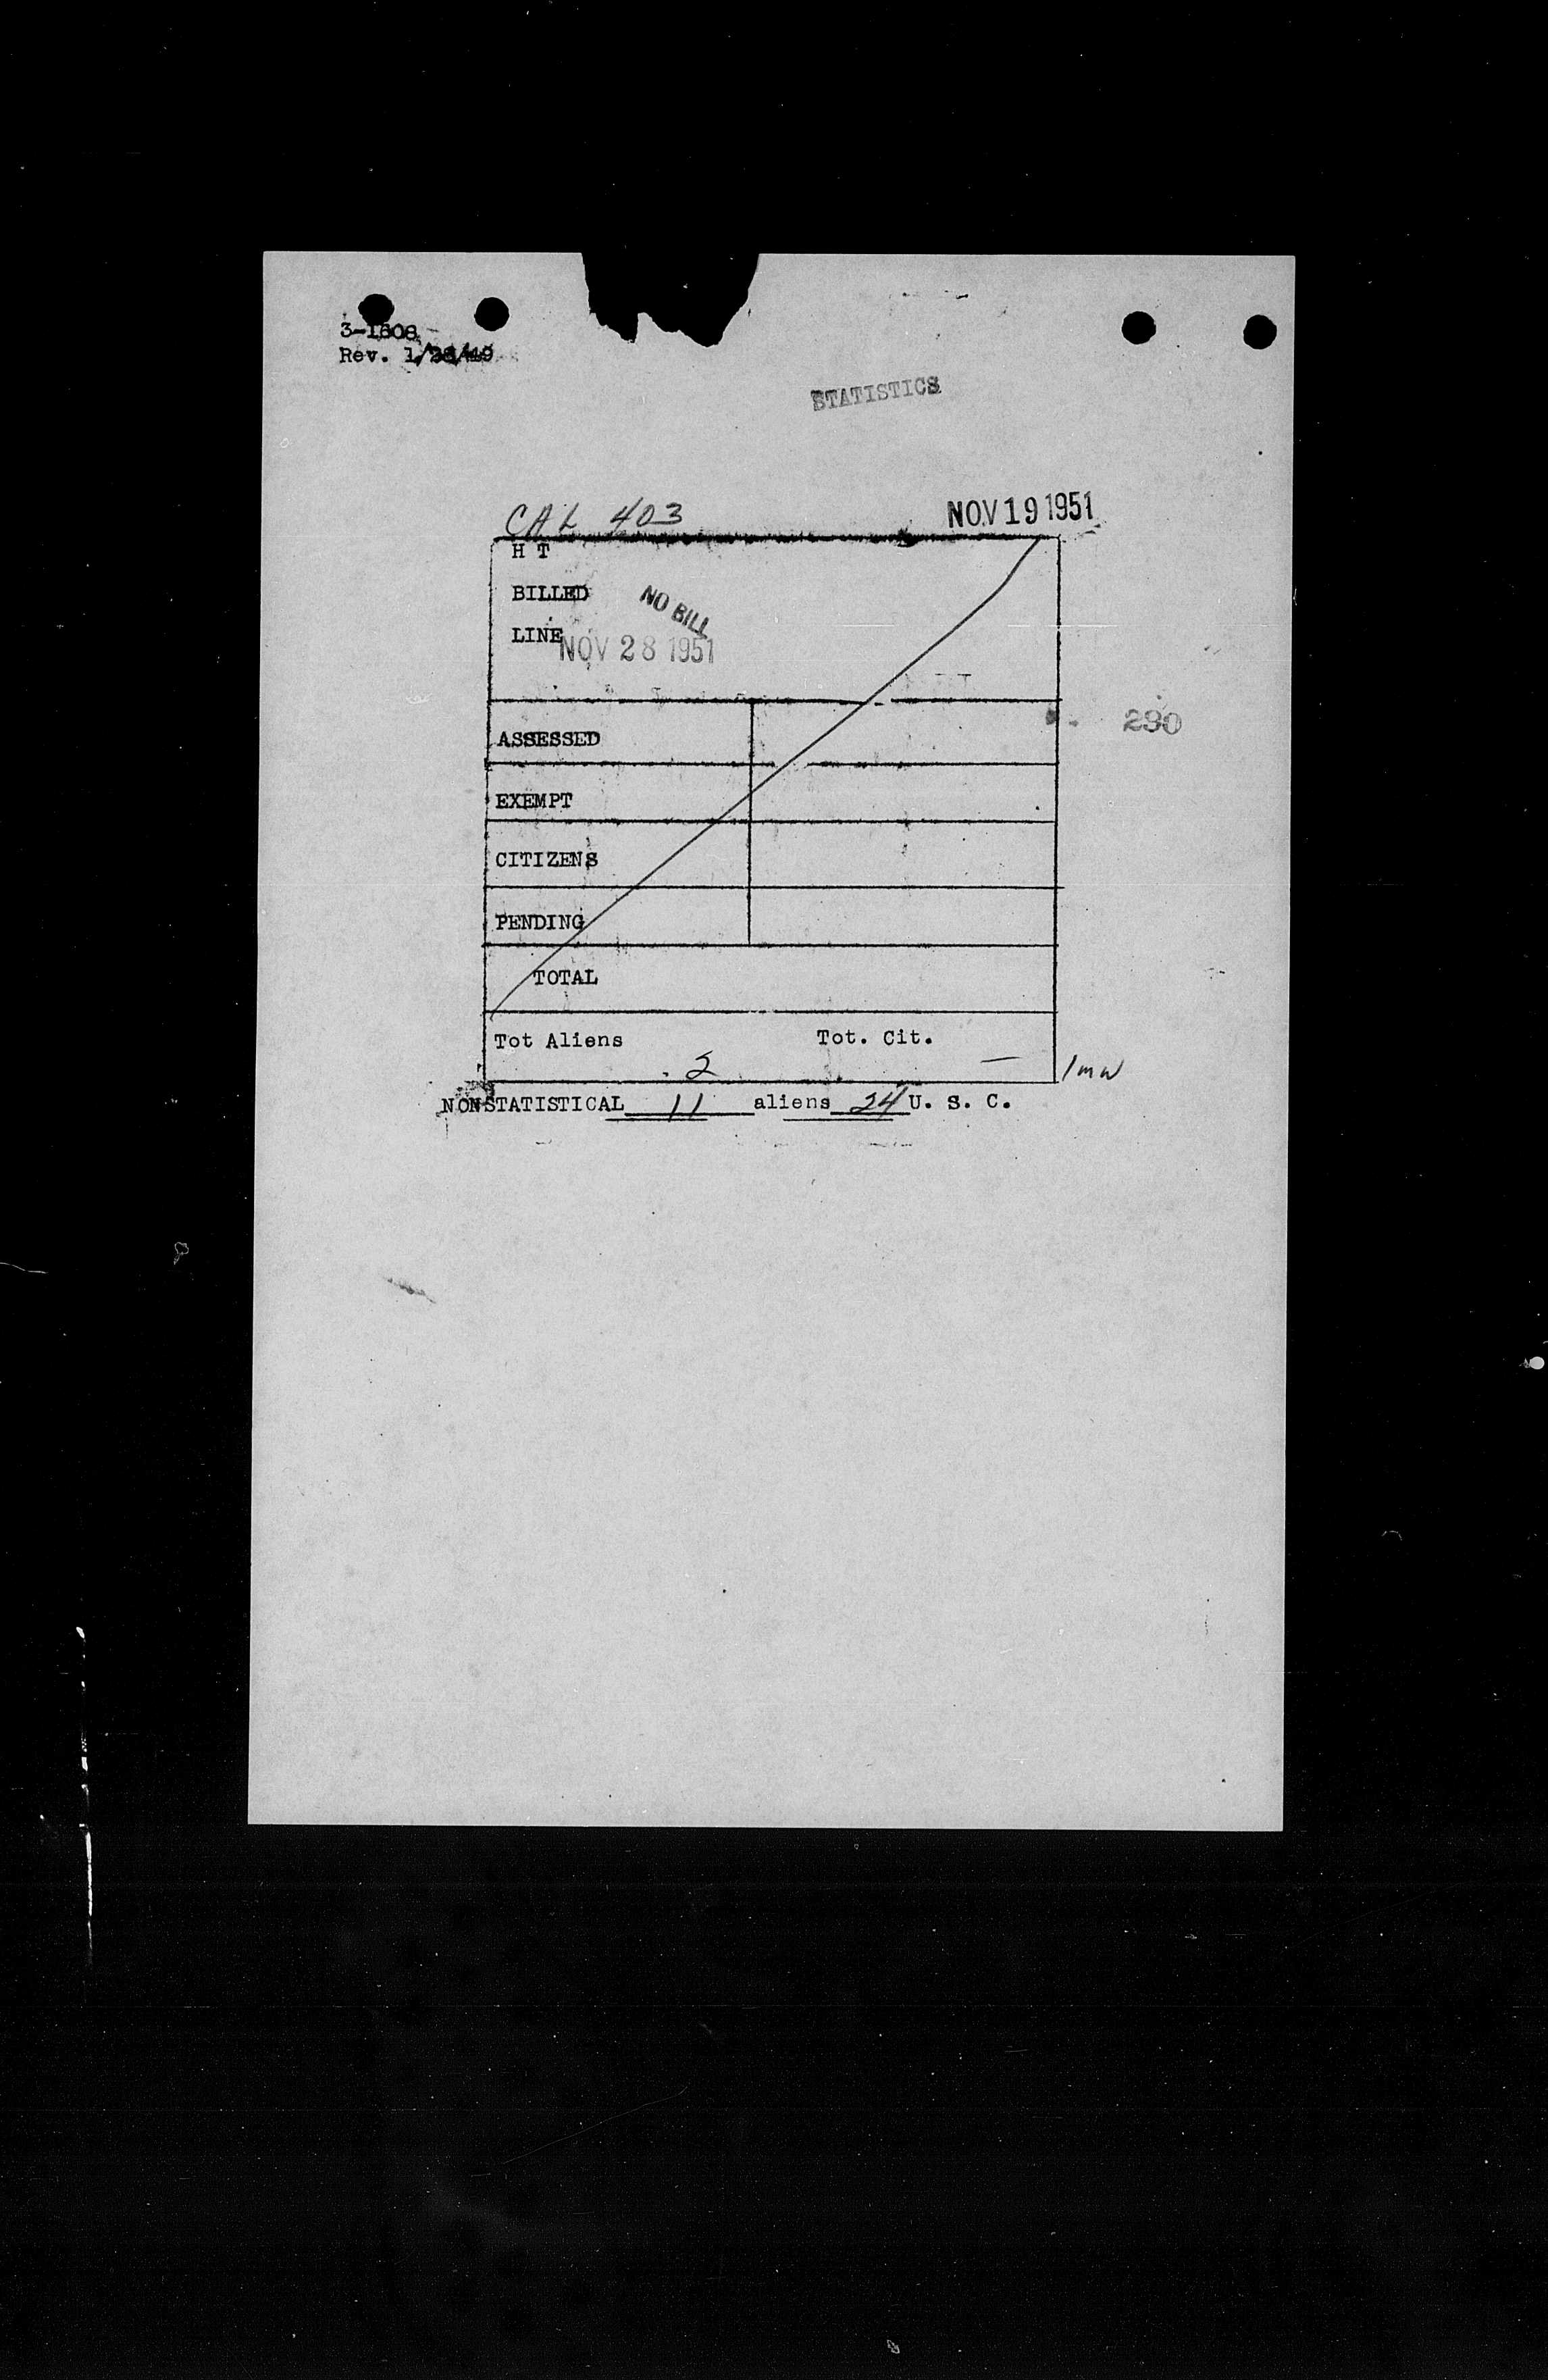 3-1608
Rev. 1/28/49
STATISTICS
CAL 403 NOV 19 1951
H T
BILLED NO BILL
LINE NOV 28 1951
ASSESSED
230
EXEMPT
CITIZENS
PENDING
TOTAL
Tot Aliens Tot. Cit.
2 — 1mw
NONSTATISTICAL 11 aliens 24 U. S. C.